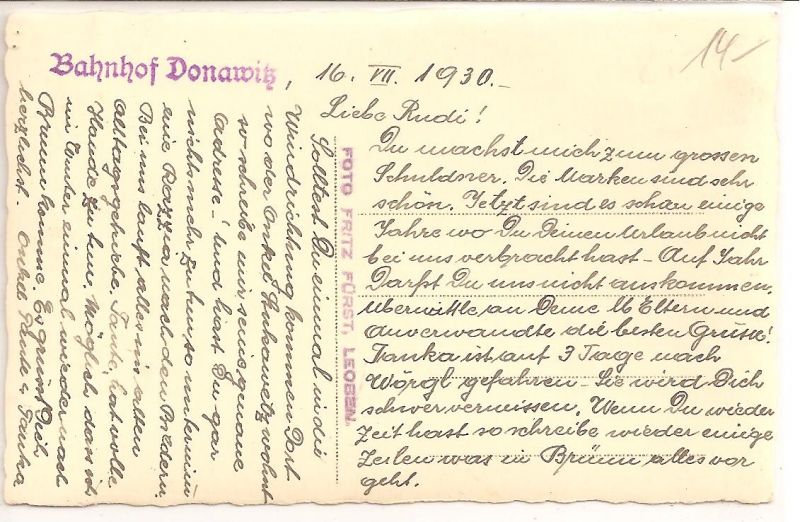 Bahnhof Donawitz,
14-
16. VII. 1930.
Liebe Rudi!
Du machst mich zum grossen
Schuldner. Die Marken sind sehr
schön. Jetzt sind es schon einige
Jahre wo Du Deinen Urlaub nicht
bei uns verbracht hast - Auf Jahr
Darfst Du uns nicht auskommen.
Übermittle an Deine lb Eltern und
Anverwandte die besten Grüsse!
Janka ist auf 3 Tage nach
Wörgl gefahren - Sie wird Dich
schwer vermissen. Wenn Du wieder
Zeit hast so schreibe wieder einige
Zeilen was in Brünn alles vor
geht.
FOTO FRITZ FÜRST, LEOBEN.
Solltest Du einmal in die
Windrichtung kommen Dort
wo der Onkel wohnt
so schreibe mir seine genaue
Adresse! und hast Du gar
nichts mehr zu tun, so unternimm
eine Razzia nach den Bildern.
Bei uns lauft alles im alten
Alltagsgetriebe. Tante hat volle
Hände zu tun. Möglich, dass ich
im Winter einmal wieder nach
Brünn komme. Es grüsst Dich
herzlichst. Onkel Tante u Janka